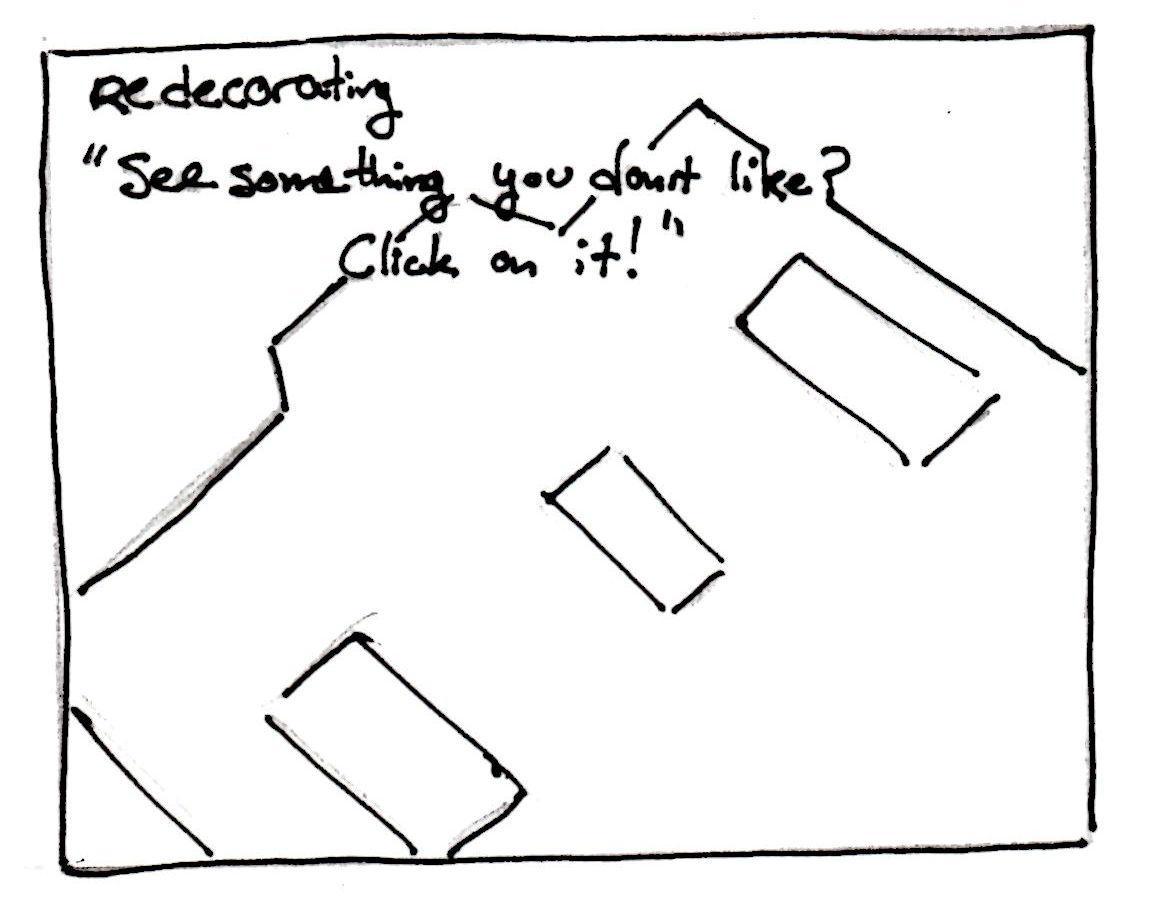 Redecorating
"See something you don't like?
Click on it!"